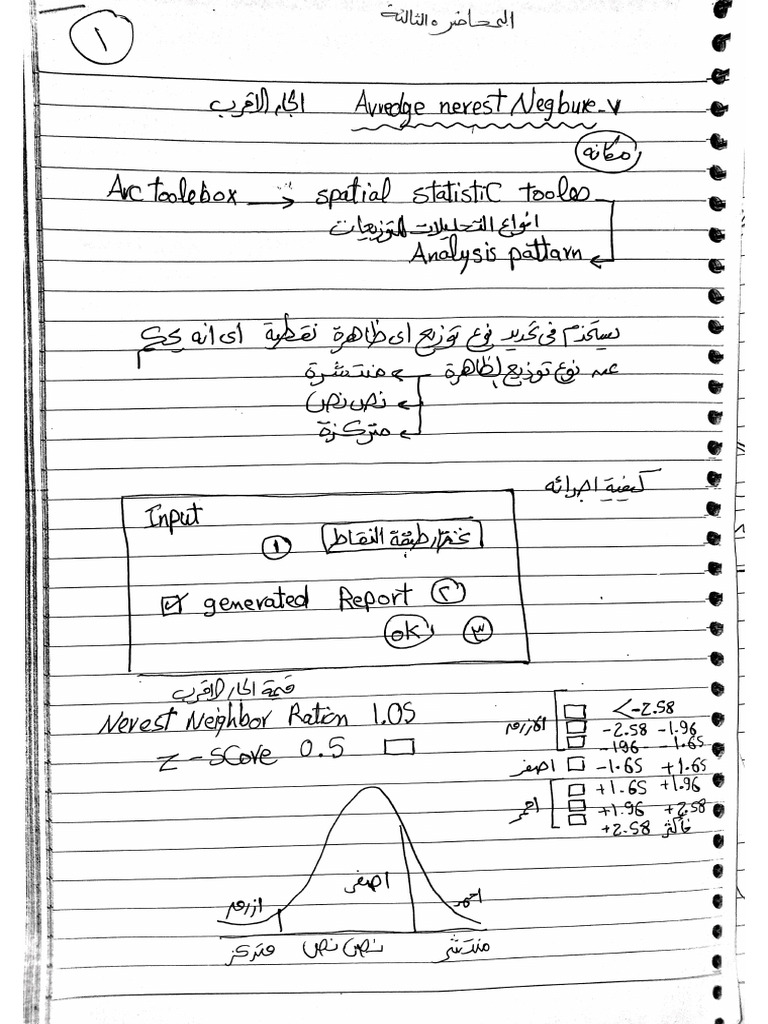 المحاضرة الثالثة
١
Avredge nerest Negbure-٧ الجار الاقرب
مكانه
Arc toolebox → spatial statistic tooles
انواع التحليلات للتوزيعات
Analysis pattarn
يستخدم فى تحديد نوع توزيع اى ظاهرة نقطية اى انه يحكم
عن نوع توزيع الظاهرة منتشرة
نص نص
متركزة
كيفية اجرائه
Input
١ نختار طبقة النقاط
generated Report ٢
ok ٣
قيمة الجار الاقرب
Nerest Neighbor Ration 1.05
z-score 0.5
الازرق
<-2.58
-2.58 -1.96
-196 -1.65
اصفر -1.65 +1.65
احمر
+1.65 +1.96
+1.96 +2.58
+2.58 فأكثر
ازرق اصفر احمر
متركز نص نص منتشر